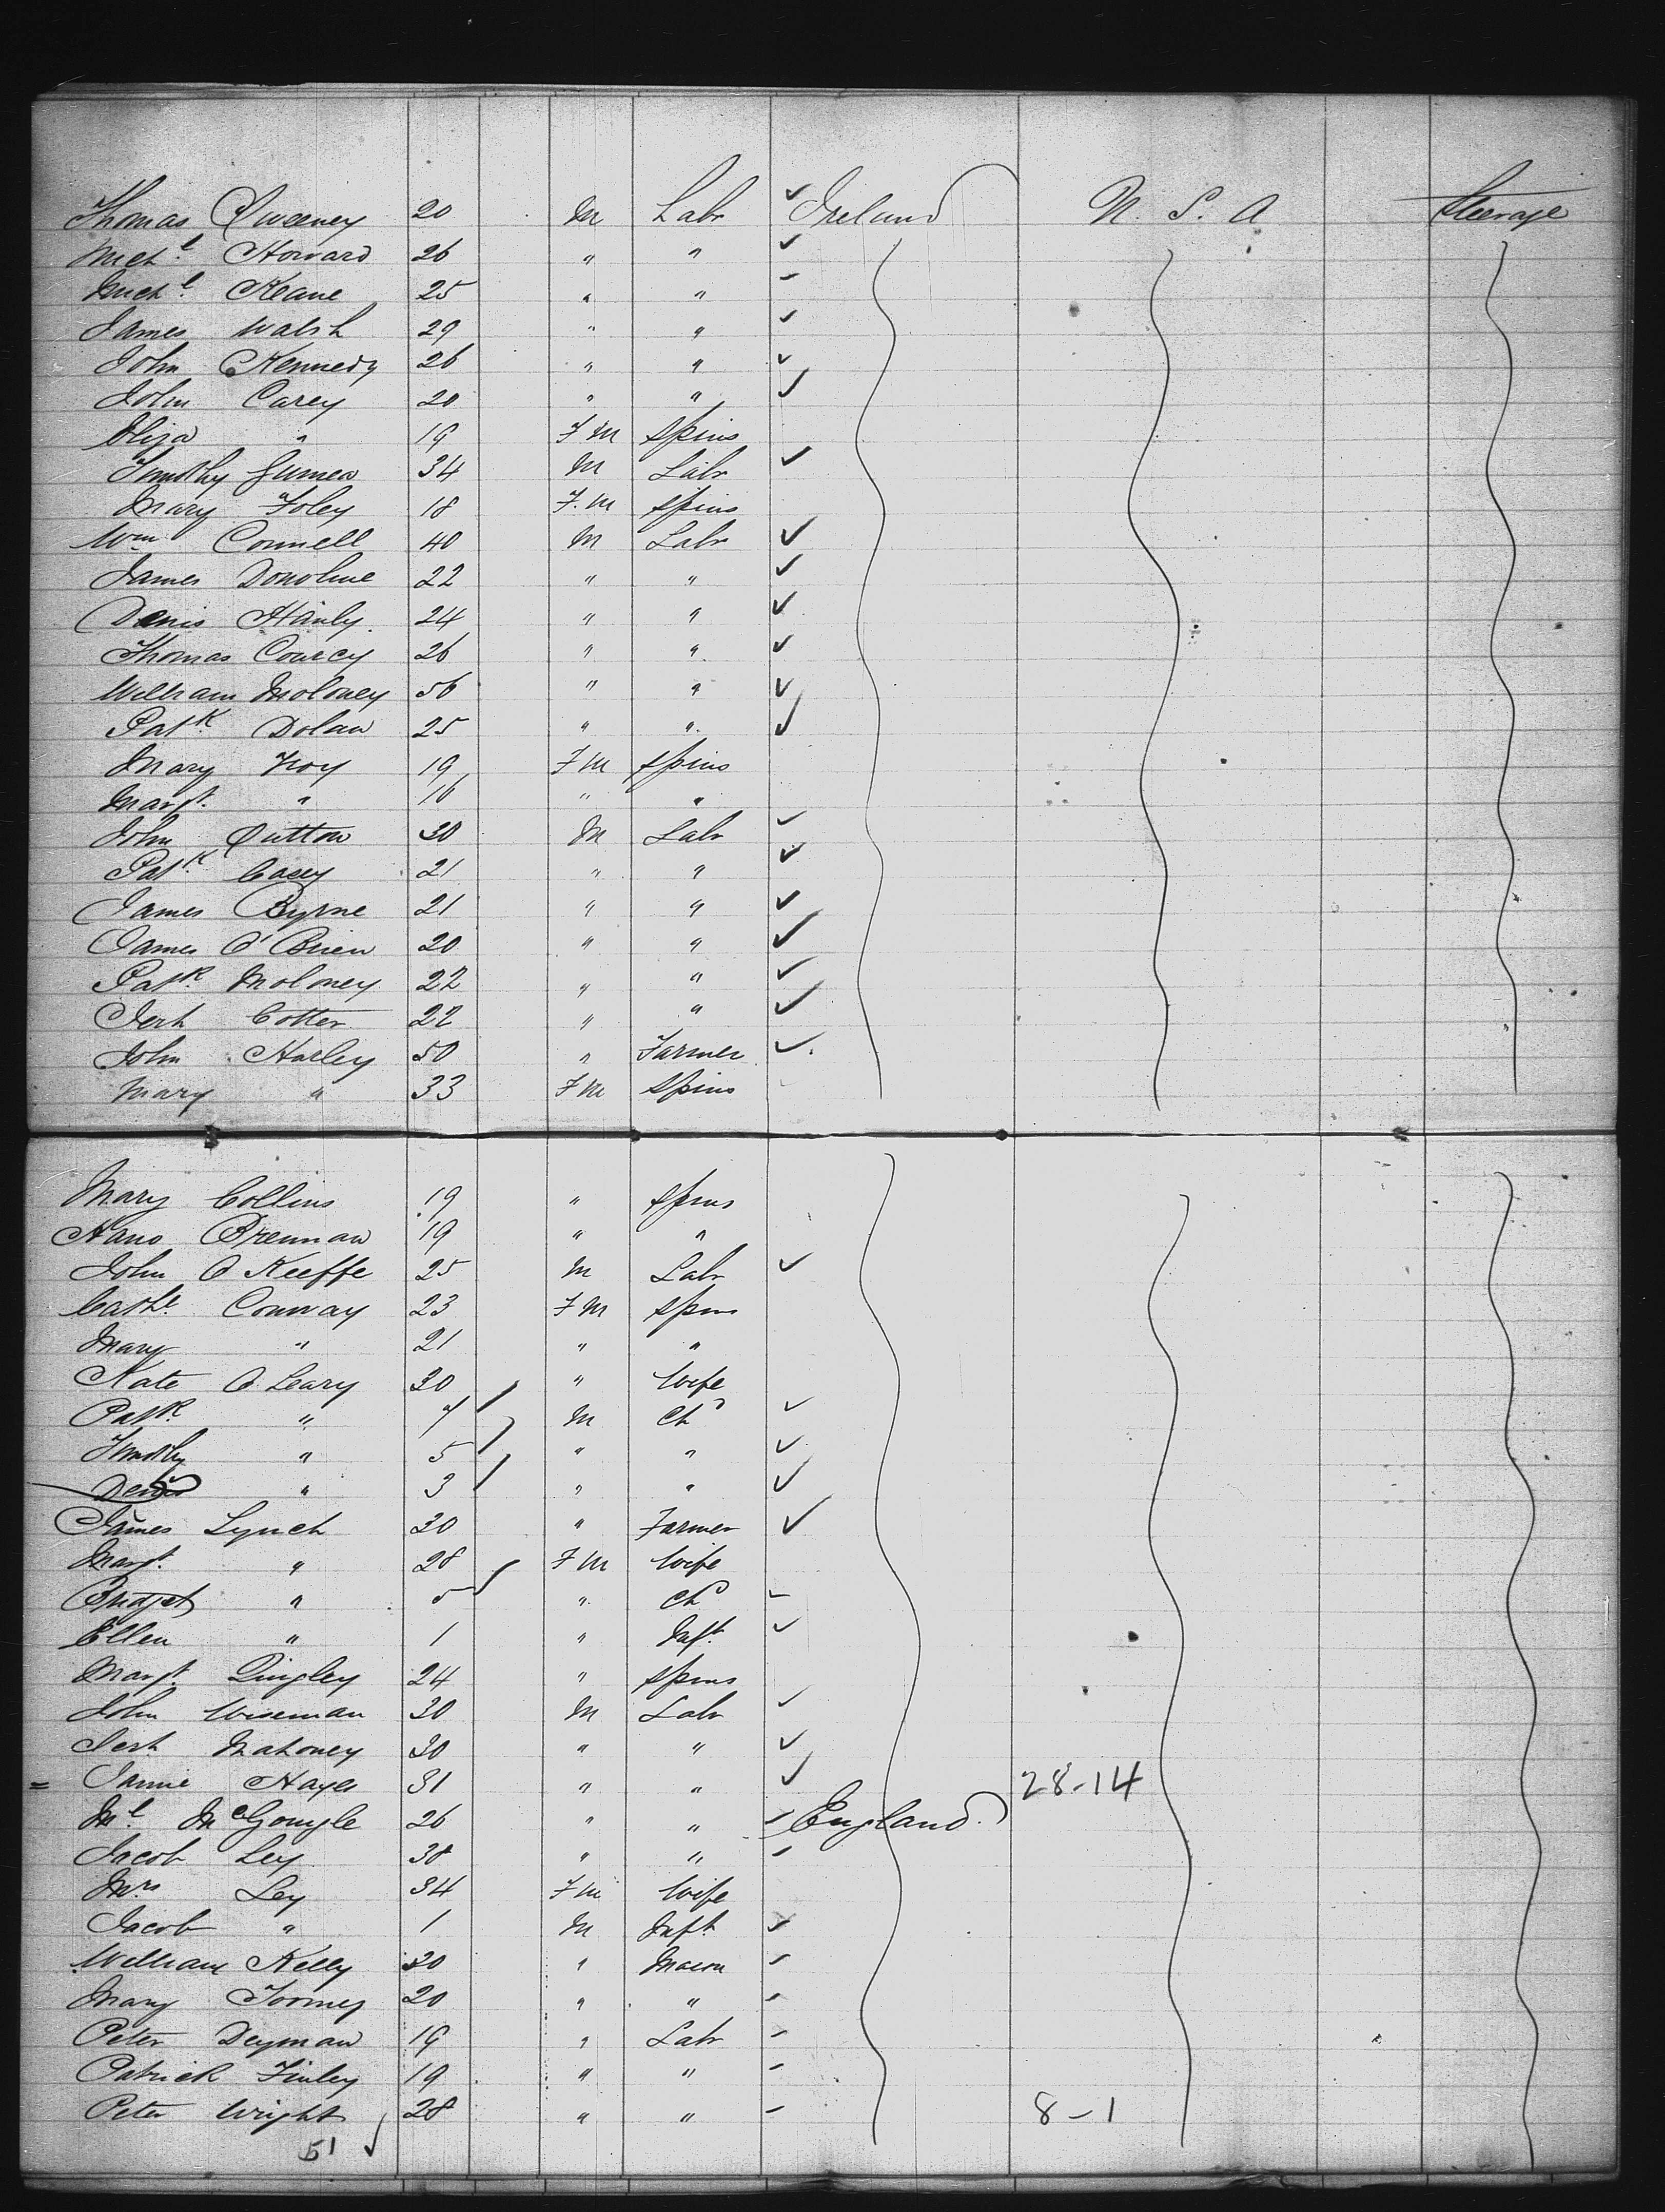 Thomas Sweeney 20 M Labr ✓ Ireland U. S. A Steerage
Michl. Howard 26 " " ✓
Michl. Keane 25 " " –
James Walsh 29 " " ✓
John Kennedy 26 " " ✓
John Carey 20 " " ✓
Eliza " 19 F M Spins
Timothy Guinea 34 M Labr ✓
Mary Foley 18 F. M Spins
Wm Connell 40 M Labr ✓
James Donohue 22 " " ✓
Denis Hanly 24 " " ✓
Thomas Courcy 26 " " ✓
William Moloney 56 " " ✓
Patk. Dolan 25 " " ✓
Mary Troy 19 F M Spins
Margt. " 16 " "
John Sutton 30 M Labr ✓
Patk. Casey 21 " " ✓
James Byrne 21 " " ✓
James O'Brien 20 " " ✓
Patk. Moloney 22 " " ✓
Jerh Cotter 22 " " ✓
John Harley 50 " Farmer ✓
Mary " 33 F M Spins
Mary Collins 19 " Spins
Hano Brennan 19 " "
John O Keeffe 25 M Labr ✓
Cathe Conway 23 F M Spins
Mary " 21 " "
Kate O Leary 30 " Wife
Patk. " 7 M Chd ✓
Timothy " 5 " " ✓
Denis " 3 " " ✓
James Lynch 30 " Farmer ✓
Margt. " 28 F M Wife
Bridget " 5 " Chd –
Ellen " 1 " Inft. ✓
Margt. Dingley 24 " Spins
John Wiseman 30 M Labr ✓
Jerh Mahoney 30 " " ✓
= Jamie Hayes 31 " " ✓ 28-14
Ml. McGonyle 26 " " – England
Jacob Ley 38 " " –
Mrs Ley 34 F M Wife
Jacob " 1 M Inft. ✓
William Kelly 30 " Mason –
Mary Toomey 20 " " –
Peter Deyman 19 " Labr –
Patrick Finley 19 " " –
Peter Wright 28 " " – 8-1
51 ✓